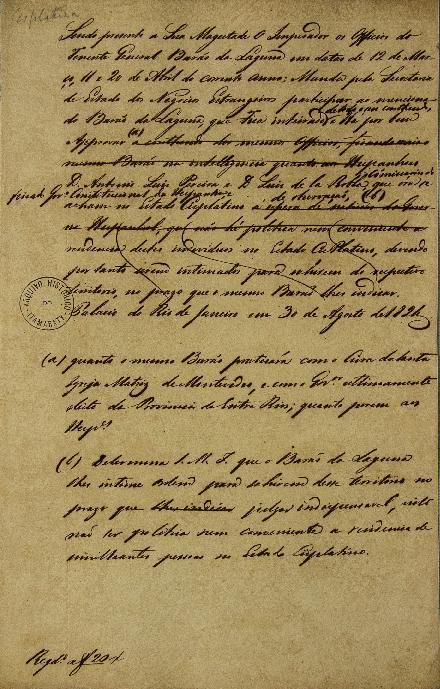 Cisplatina
Sendo presente a Sua Magestade O Imperador os Officios do
Tenente General Barão da Laguna em datas de 12 de Mar-
ço, 11 e 20 de Abril do corrente anno: Manda pela Secretaria
de Estado dos Negocios Estrangeiros participar ao menciona-
do Barão da Laguna, que fica inteirado e Há por bem
Approvar (a)
mesmo Barão na intelligencia quanto aos Hespanhoes
D. Antonio Luis Pereira e D. Luis de la Robla, que
(b)
no Estado Cisplatino
não hé politica nem conveniente a
residencia destes individuos no Estado Cisplatino, devendo
por tanto serem intimados para sahirem do respectivo
territorio, no prazo que o mesmo Barão lhes indicar.
Palacio do Rio de Janeiro em 30 de Agosto de 1824
ARQUIVO HISTORICO
ITAMARATY
(a) quanto o mesmo Barão praticára com o Cura da
Igreja Matriz de Montevideo, e com o Gov.or ultimamente
eleito da Provincia de Entre Rios; quanto porem aos
Hesp.es
(b) Determina S. M. I. que o Barão da Laguna
lhes intime ordem para sahirem desse territorio no
prazo que lhes indicar julgar indispensavel, visto
não ser politica nem conveniente a residencia de
similhantes pessoas no Estado Cisplatino.
Reg.do a f 20